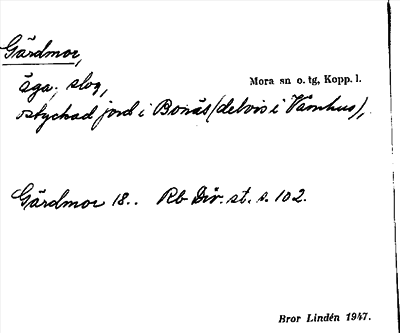 Gärdmor,
äga; slog, Mora sn o. tg, Kopp. l.
ostyckad jord i Bonäs (delvis i Våmhus),
Gärdmor 18.. Rb Div. st. s. 102.
Bror Lindén 1947.